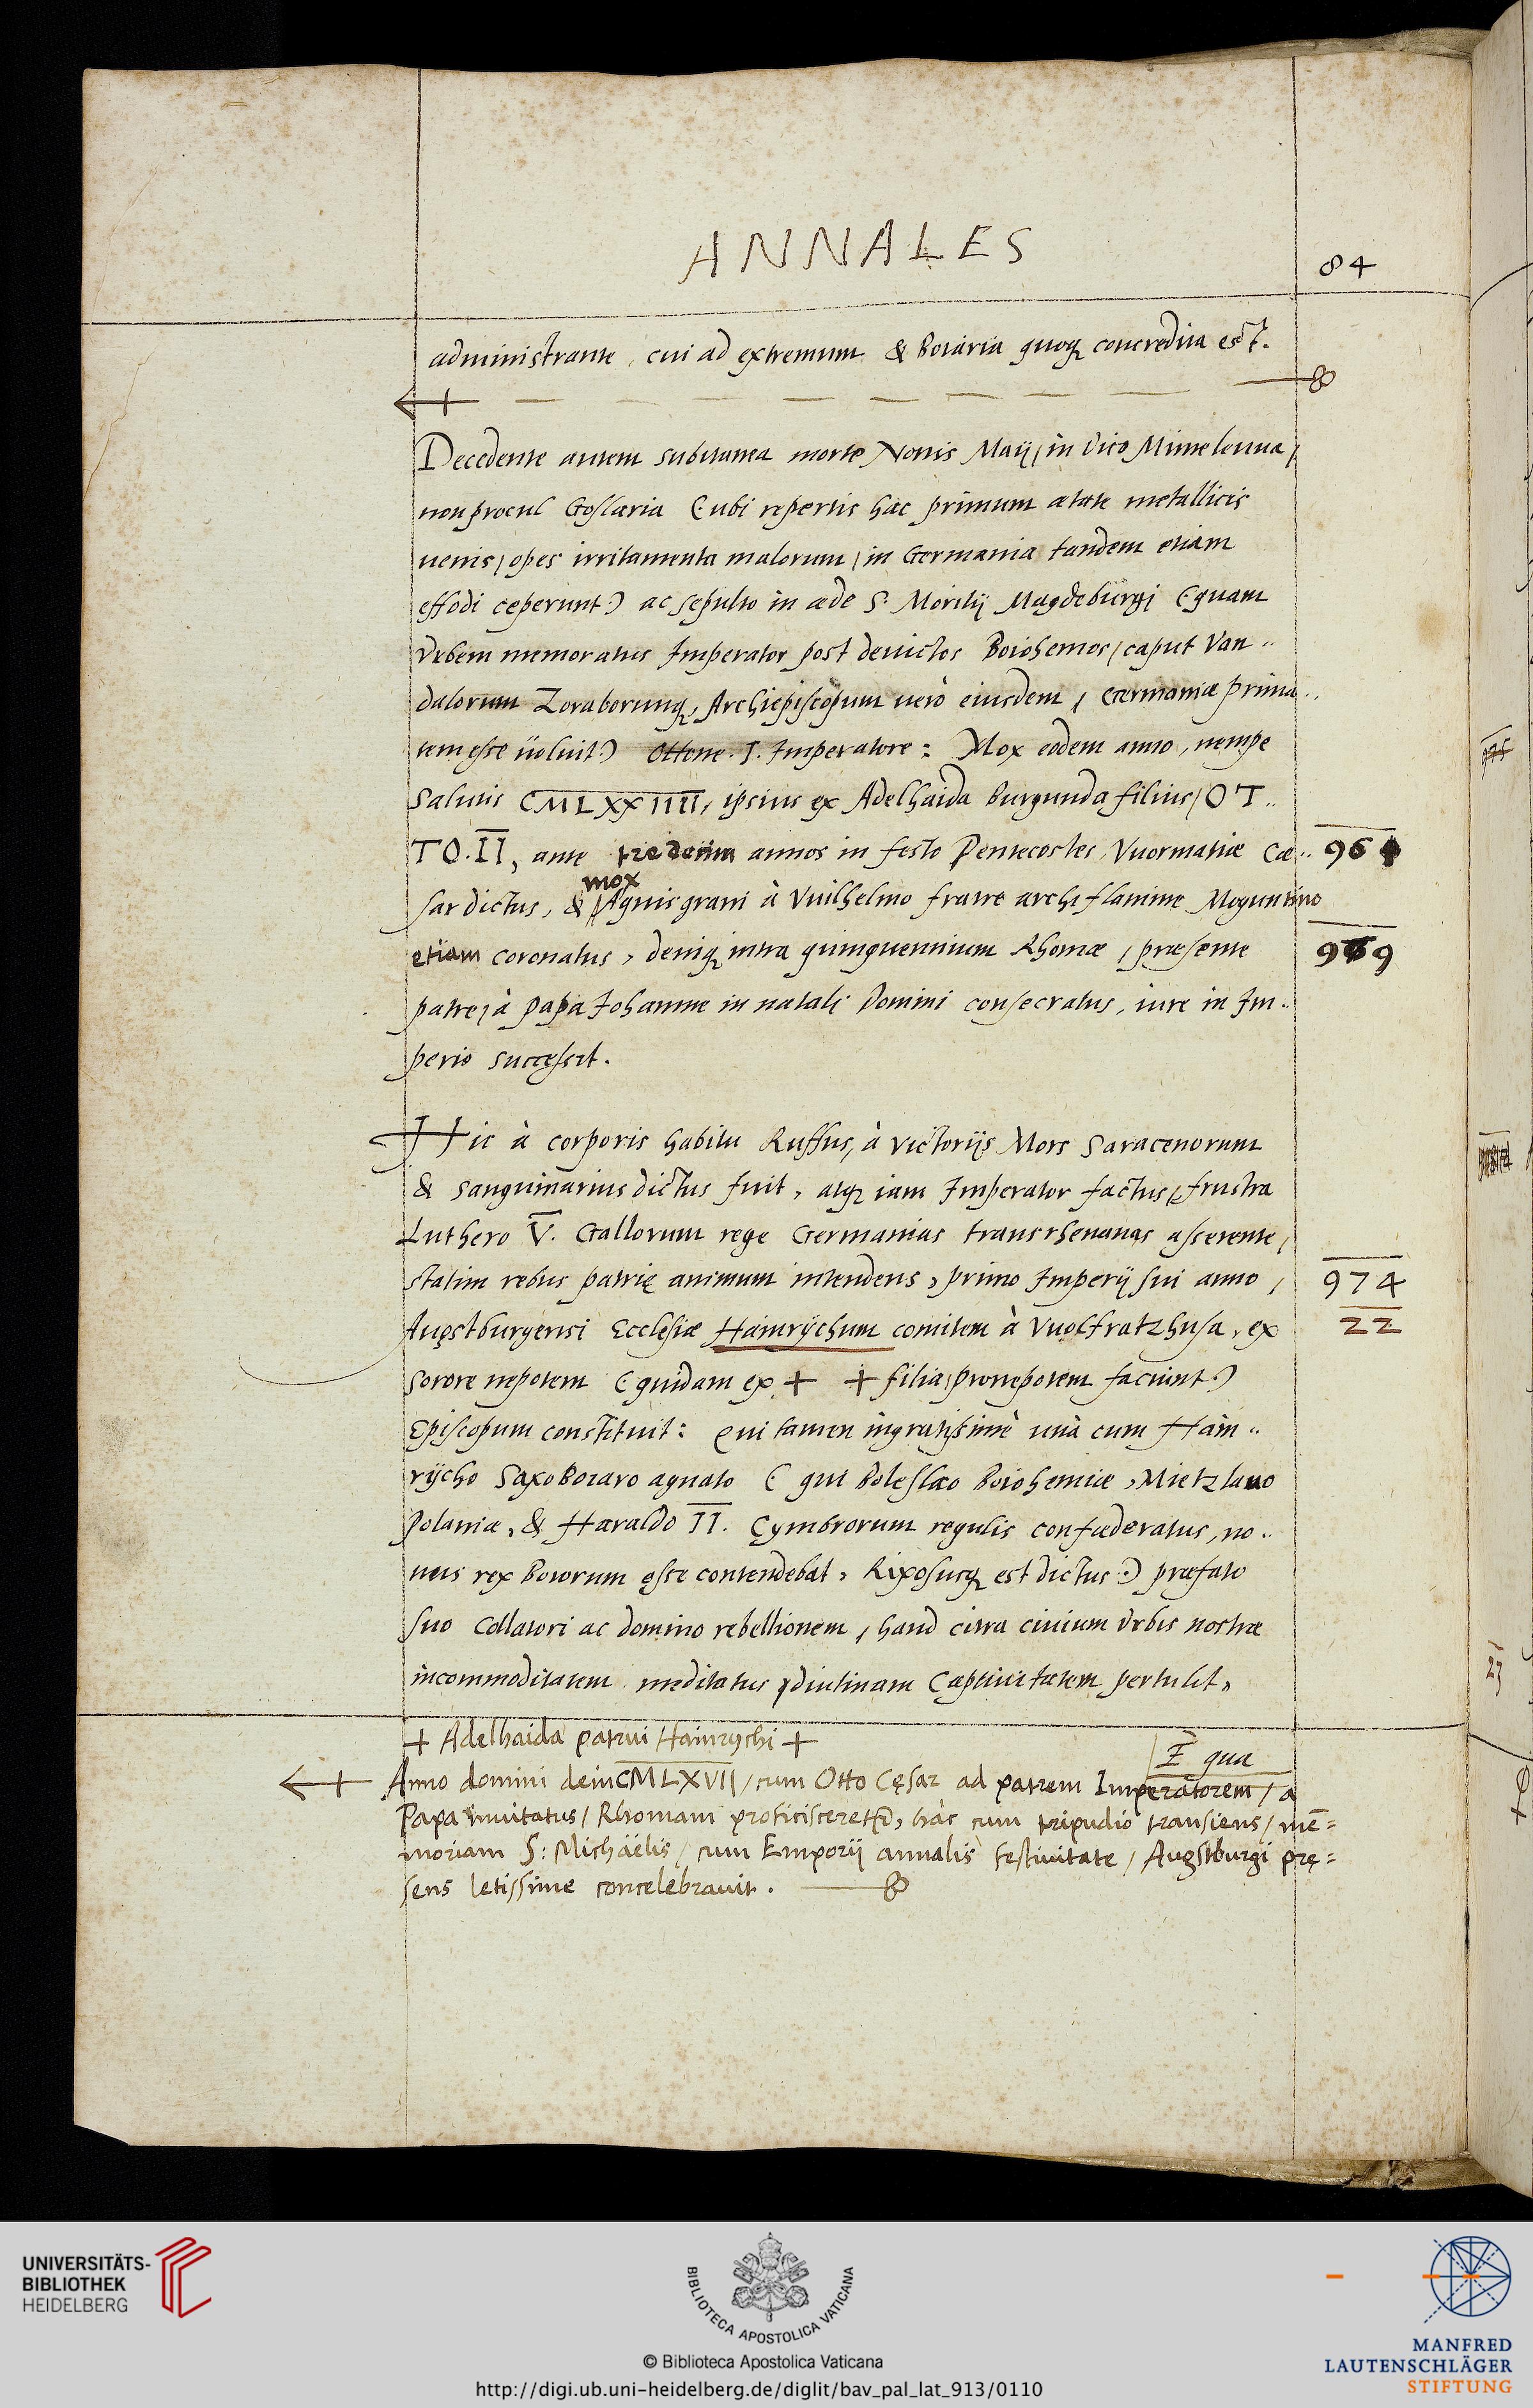 ANNALES
84
administrante, cui ad extremum & Boiaria quoq concredita est.
Decedente autem subitanea morte Nonis Maij, in Vico Mimelenua,
non procul Goslaria (ubi repertis hac primum ætate metallicis
uenis, opes irritamenta malorum, in Germania tandem etiam
effodi ceperunt) ac sepulto in æde S. Moritij Magdebürgi (quam
Vrbem memoratus Imperator post deuictos Boiohemos, caput Van..
dalorum Zoraborumq, Archiepiscopum uerò eiusdem, Germaniæ prima..
tem esse üoluit) Ottone. I. Imperatore: Mox eodem anno, nempe
Salutis CMLXXIIII, ipsius ex Adelhaida Burgunda filius, OT..
TO. II, ante tredecim annos in festo Pentecostes Vuormatiæ Cæ..
961
mox
sar dictus, & Aquisgrani à Vuilhelmo fratre archiflamine Moguntino
etiam coronatus, deniq intra quinquennium Rhomæ, præsente
969
patre, à Papa Iohanne in natali Domini consecratus, iure in Im..
perio successit.
Hic à corporis habitu Ruffus, à victorijs Mors Saracenorum
& Sanguinarius dictus fuit, atq iam Imperator factus, frustra
Luthero V. Gallorum rege Germanias transrhenanas asserente,
statim rebus patrię animum intendens, primo Imperij sui anno,
974
Augstburgensi Ecclesiæ Hainrÿchum comitem à Vuolfratzhusa, ex
22
sorore nepotem (quidam ex + + filia, pronepotem faciunt)
Episcopum constituit: Qui tamen ingratissimè unà cum Hain..
rÿcho Saxoboiaro agnato (qui Boleslao Boiohemiæ, Mietzlauo
Polaniæ, & Haraldo II. Cymbrorum regulis confæderatus, no..
uus rex Boiorum esse contendebat, Rixosusq est dictus) præfato
suo Collatori ac domino rebellionem, haud citra ciuium Vrbis nostræ
incommoditatem meditatus, diutinam Captiuitatem pertulit,
+ Adelhaida patrui Hainrychi +
E qua
Anno domini dein CMLXVII, cum Otto Cęsar ad patrem Imperatorem, a
Papa inuitatus, Rhomam proficisceret, hàc cum tripudio transiens, mē=
moriam S: Michäelis, cum Emporij annalis festiuitate, Augstburgi prę=
sens letissime concelebrauit.
UNIVERSITÄTS-
BIBLIOTHEK
HEIDELBERG
BIBLIOTECA APOSTOLICA VATICANA
© Biblioteca Apostolica Vaticana
http://digi.ub.uni-heidelberg.de/diglit/bav_pal_lat_913/0110
MANFRED
LAUTENSCHLÄGER
STIFTUNG